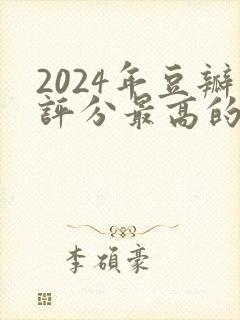 2024年豆瓣
評分最高的
李碩豪